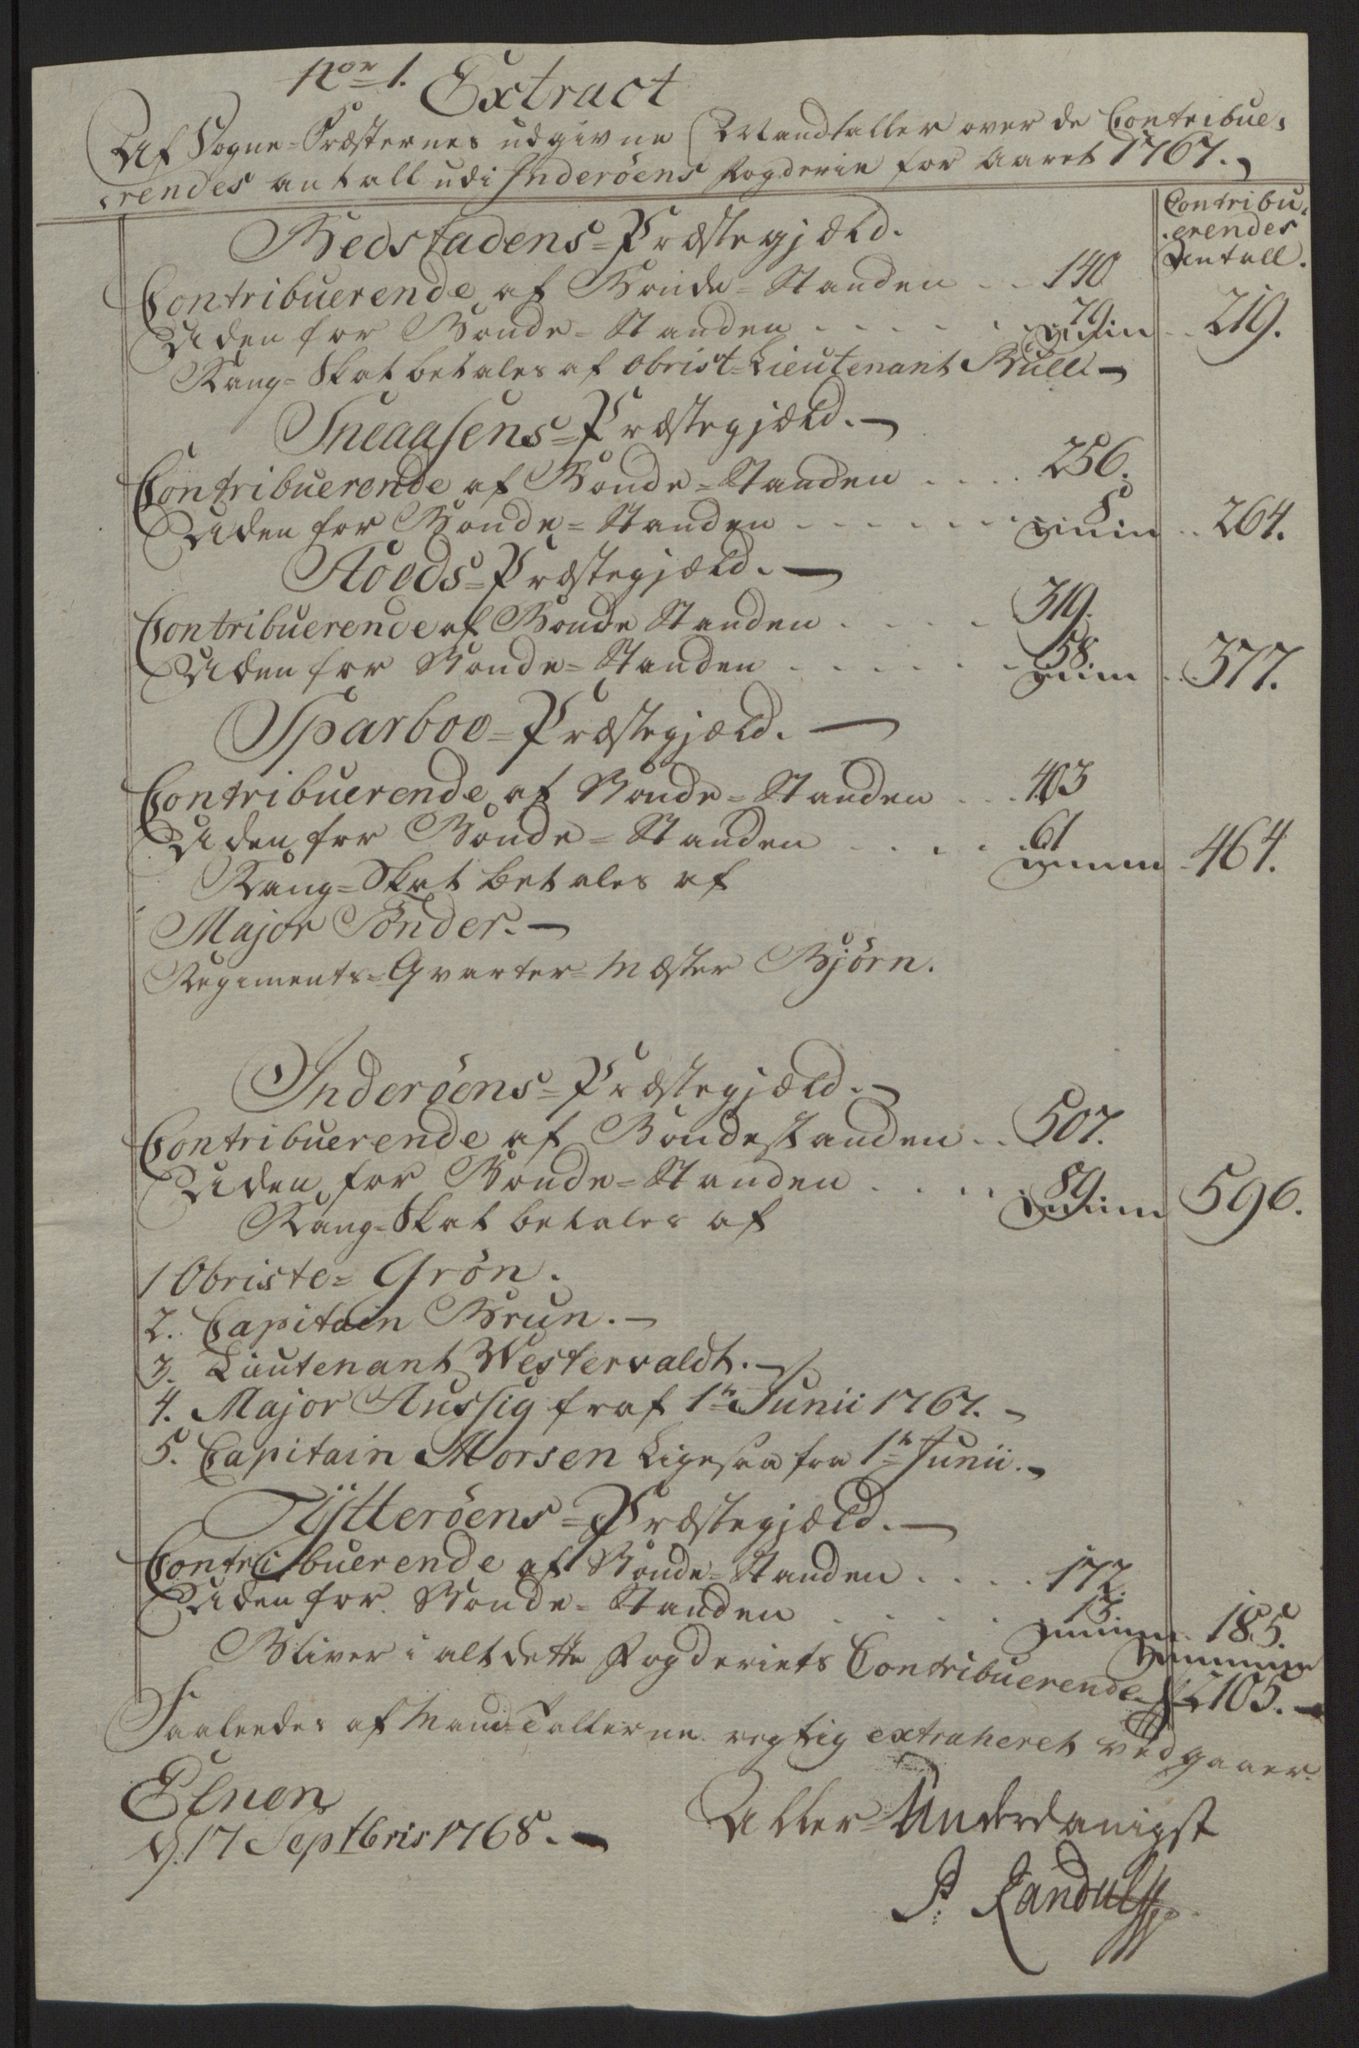 Nor 1. Extract
Af Sogne-Præsternes udgivne Mandtaller over de Contribue,
,rendes antall udi Inderöens Fogderie for Aaret 1767.
Contribu,
,erendes
Antall.
Bedstadens-Præstegjæld.
Contribuerende af Bonde-Standen .. 140
Uden for Bonde-Standen ...... 79. 219.
Rang-Skat betales af Obrist-Lieutenant Bull
Sneaasens-Præstegjæld.
Contribuerende af Bonde-Standen .... 256.
Uden for Bonde-Standen ...... 8 264.
Stoeds-Præstegjæld.
Contribuerende af Bonde Standen .... 319.
Uden for Bonde-Standen ...... 58. 377.
Sparboe-Præstegjæld.
Contribuerende af Bonde-Standen ... 403
Uden for Bonde-Standen ..... 61 464.
Rang-Skat betales af
Major Sønder.
Regiments-Qvarter-Mæster Bjørn.
Inderöens-Præstegjæld.
Contribuerende af Bondestanden .. 507.
Uden for Bonde-Standen ..... 89. 596.
Rang-Skat betales af
1 Obriste- Grön.
2. Capitain Brun.
3. Lieutenant Westervaldt.
4. Major Hussig fraf 1te Junii 1767.
5. Capitain Morsen Ligesaa fra 1te Junii.
Ÿtteröens-Præstegjæld.
Contribuerende af Bonde-Standen .... 172.
Uden for Bonde-Standen ...... 13. 185.
Bliver i alt dette Fogderiets Contribuerende 2105.
Saaledes af Mandtallerne rigtig extraheret vedgaaer.
Elnen
d. 17 Septbris 1768.
Aller-Underdanigst
P: Randulff